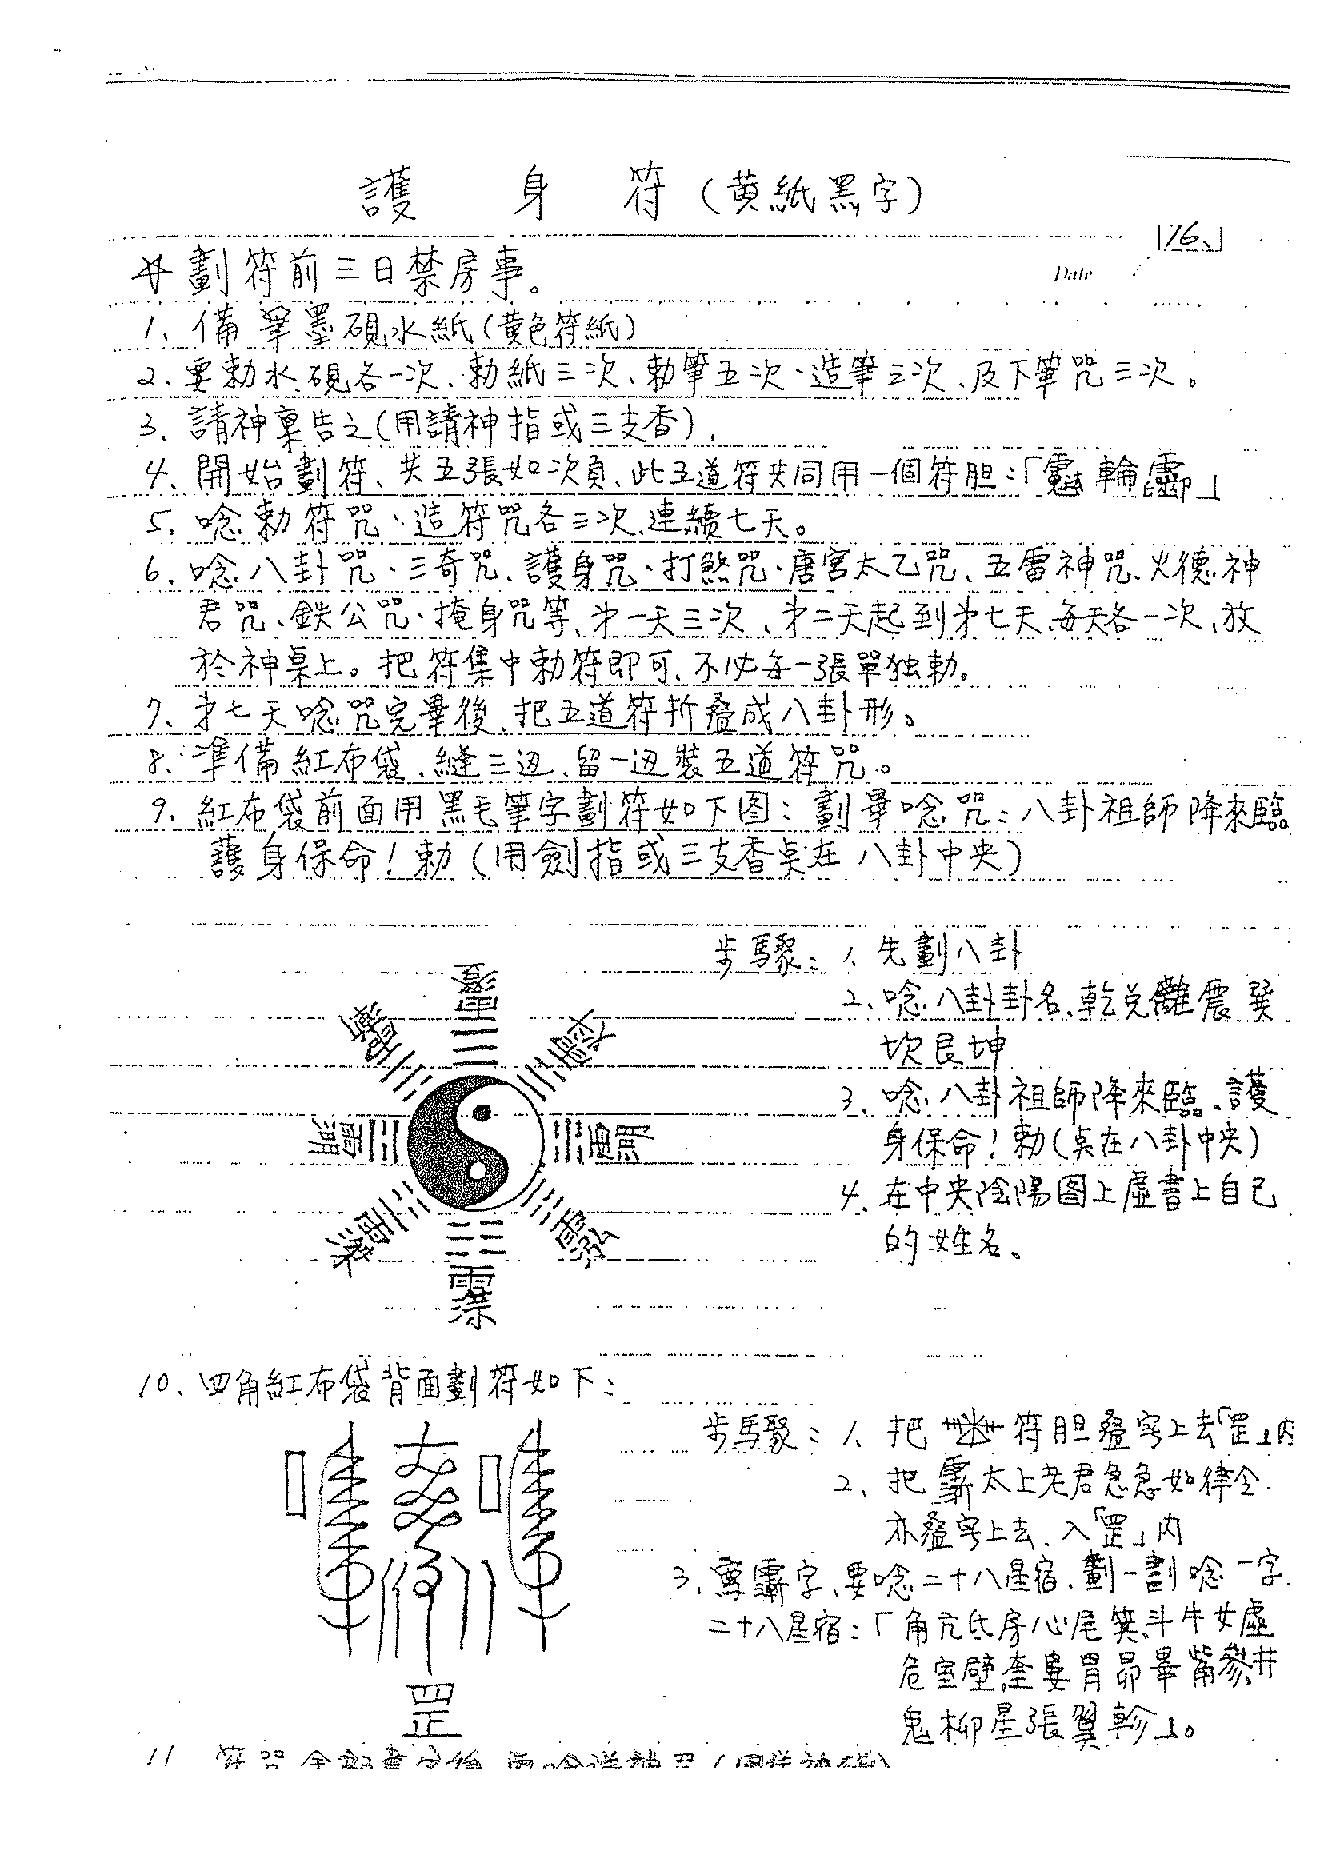 護身符(黄紙黑字)
16、
Date
劃符前三日禁房事。
1、備筆墨硯水紙(黄色符紙)
2、要勅水、硯各一次、勅紙三次、勅筆五次、造筆三次、及下筆咒三次。
3、請神稟告之(用請神指或三支香)、
4、開始劃符、共五張如次頁、此五道符共同用一個符胆：「輪」
5、唸勅符咒、造符咒各三次、連續七天。
6、唸八卦咒、三奇咒、護身咒、打煞咒、唐宮太乙咒、五雷神咒、火德神
君咒、鉄公咒、掩身咒等、才一天三次、才二天起到才七天、每天各一次、放
於神桌上。把符集中勅符即可、不必每一張單独勅。
7、才七天唸咒完畢後、把五道符折叠成八卦形。
8、準備紅布袋、縫三边、留一边裝五道符咒。
9、紅布袋前面用黑毛筆字劃符如下图：劃畢唸咒：八卦祖師降來臨。
護身保命！勅(用劍指或三支香点在八卦中央)
步驟：1、先劃八卦
2、唸八卦卦名、乾兌離震巽
坎艮坤
3、唸八卦祖師降來臨、護
身保命！勅(点在八卦中央)
4、在中央陰陽图上虛書上自己
的姓名。
10、四角紅布袋背面劃符如下：
罡
步驟：1、把符胆叠写上去「罡」内
2、把太上老君急急如律令
亦叠写上去、入「罡」内
3、字、要唸二十八星宿、劃一劃唸一字
二十八星宿：「角亢氐房心尾箕斗牛女虛
危室壁奎婁胃昴畢觜參井
鬼柳星張翼軫」。
11